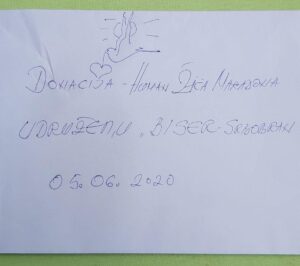 DONACIJA - HUMAN ŽIKA MARADONA
UDRUŽENJU "BISER" SRBOBRAN
05.06.2020